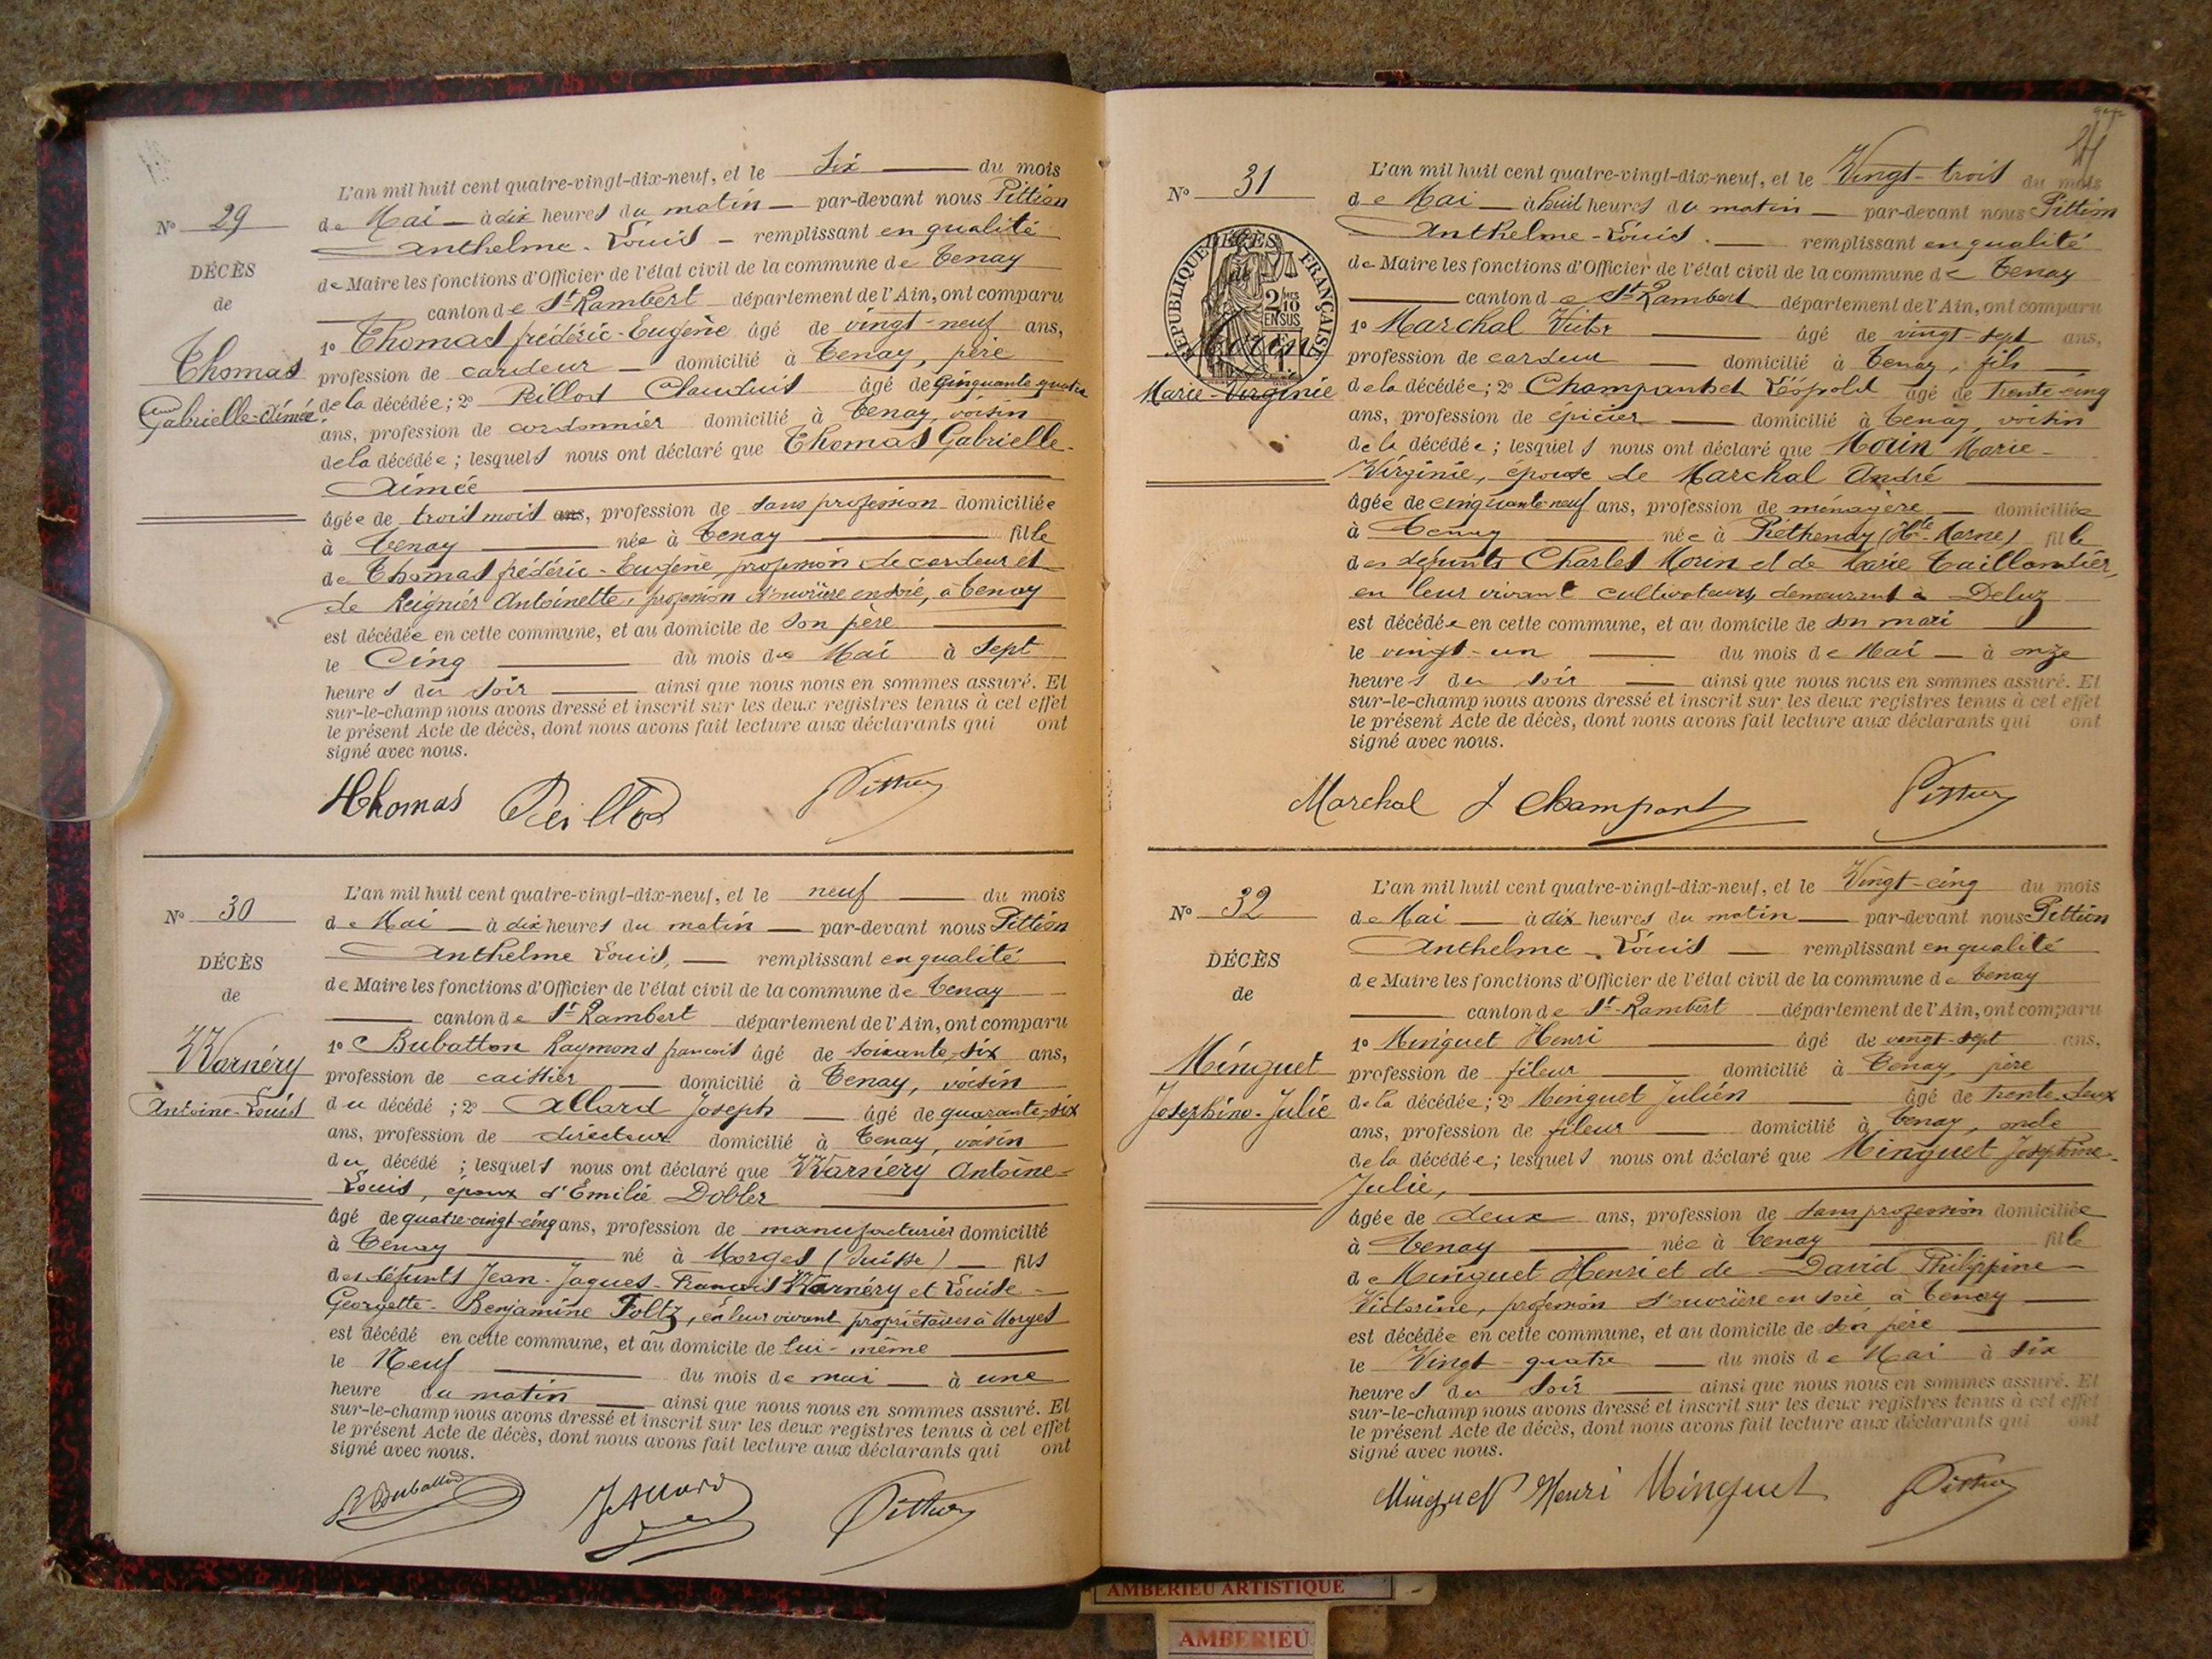 L'an mil huit cent quatre-vingt-dix-neuf, et le Six du mois
Nº 29
de Mai à dix heures du matin par-devant nous Pittion
Anthelme-Louis remplissant en qualité
DÉCÈS
de Maire les fonctions d'Officier de l'état civil de la commune de Tenay
de
canton de St-Rambert département de l'Ain, ont comparu
1º Thomas frédéric-Eugène âgé de vingt-neuf ans,
Thomas
profession de cardeur domicilié à Tenay, père
Gabrielle-Aimée
de la décédée; 2º Peillod Claudius âgé de cinquante quatre
ans, profession de cordonnier domicilié à Tenay, voisin
de la décédée; lesquels nous ont déclaré que Thomas Gabrielle-
Aimée
âgée de trois mois ans, profession de sans profession domiciliée
à Tenay née à Tenay fille
de Thomas frédéric-Eugène, profession de cardeur et
de Reignier Antoinette, profession d'ouvrière en soie, à Tenay
est décédée en cette commune, et au domicile de son père
le Cinq du mois de Mai à sept
heures du soir ainsi que nous nous en sommes assuré. Et
sur-le-champ nous avons dressé et inscrit sur les deux registres tenus à cet effet
le présent Acte de décès, dont nous avons fait lecture aux déclarants qui ont
signé avec nous.
Thomas Peillod Pittion
L'an mil huit cent quatre-vingt-dix-neuf, et le neuf du mois
Nº 30
de Mai à dix heures du matin par-devant nous Pittion
Anthelme Louis, remplissant en qualité
DÉCÈS
de Maire les fonctions d'Officier de l'état civil de la commune de Tenay
de
canton de St-Rambert département de l'Ain, ont comparu
1º Bubatton Raymond françois âgé de soixante-six ans,
Warnéry
profession de caissier domicilié à Tenay, voisin
Antoine-Louis
du décédé; 2º Allard Joseph âgé de quarante-six
ans, profession de directeur domicilié à Tenay, voisin
du décédé; lesquels nous ont déclaré que Warnéry Antoine-
Louis, époux d'Émilie Dobler
âgé de quatre-vingt-cinq ans, profession de manufacturier domicilié
à Tenay né à Morges (Suisse) fils
des défunts Jean-Jaques-François Warnéry et Louise-
Georgette-Benjamine Foltz, en leur vivant propriétaires à Morges
est décédé en cette commune, et au domicile de lui-même
le Neuf du mois de mai à une
heure du matin ainsi que nous nous en sommes assuré. Et
sur-le-champ nous avons dressé et inscrit sur les deux registres tenus à cet effet
le présent Acte de décès, dont nous avons fait lecture aux déclarants qui ont
signé avec nous.
Pittion
L'an mil huit cent quatre-vingt-dix-neuf, et le Vingt-trois du mois
Nº 31
de Mai à huit heures du matin par-devant nous Pittion
Anthelme-Louis remplissant en qualité
DÉCÈS
de Maire les fonctions d'Officier de l'état civil de la commune de Tenay
RÉPUBLIQUE FRANÇAISE
2/10 EN SUS
canton de St-Rambert département de l'Ain, ont comparu
1º Marchal Victor âgé de vingt-sept ans,
Morin
profession de cardeur domicilié à Tenay, fils
Marie-Virginie
de la décédée; 2º Léopold âgé de trente-cinq
ans, profession de épicier domicilié à Tenay, voisin
de la décédée; lesquels nous ont déclaré que Morin Marie-
Virginie, épouse de Marchal André
âgée de cinquante-neuf ans, profession de ménagère domiciliée
à Tenay née à (Hte-Marne) fille
des défunts Charles Morin et de Marie Taillandier,
en leur vivant cultivateurs, demeurant à Deluz
est décédée en cette commune, et au domicile de son mari
le vingt-un du mois de Mai à onze
heures du soir ainsi que nous nous en sommes assuré. Et
sur-le-champ nous avons dressé et inscrit sur les deux registres tenus à cet effet
le présent Acte de décès, dont nous avons fait lecture aux déclarants qui ont
signé avec nous.
Marchal Pittion
L'an mil huit cent quatre-vingt-dix-neuf, et le Vingt-cinq du mois
Nº 32
de Mai à dix heures du matin par-devant nous Pittion
Anthelme-Louis remplissant en qualité
DÉCÈS
de Maire les fonctions d'Officier de l'état civil de la commune de Tenay
de
canton de St-Rambert département de l'Ain, ont comparu
1º Minguet Henri âgé de vingt-sept ans,
Minguet
profession de fileur domicilié à Tenay, père
Joséphine-Julie
de la décédée; 2º Minguet Julien âgé de trente-deux
ans, profession de fileur domicilié à Tenay, oncle
de la décédée; lesquels nous ont déclaré que Minguet Joséphine-
Julie,
âgée de deux ans, profession de sans profession domiciliée
à Tenay née à Tenay fille
de Minguet Henri et de David Philippine-
Victorine, profession d'ouvrière en soie, à Tenay
est décédée en cette commune, et au domicile de son père
le Vingt-quatre du mois de Mai à six
heures du soir ainsi que nous nous en sommes assuré. Et
sur-le-champ nous avons dressé et inscrit sur les deux registres tenus à cet effet
le présent Acte de décès, dont nous avons fait lecture aux déclarants qui ont
signé avec nous.
Minguet Henri Minguet Pittion
AMBERIEU ARTISTIQUE
AMBERIEU